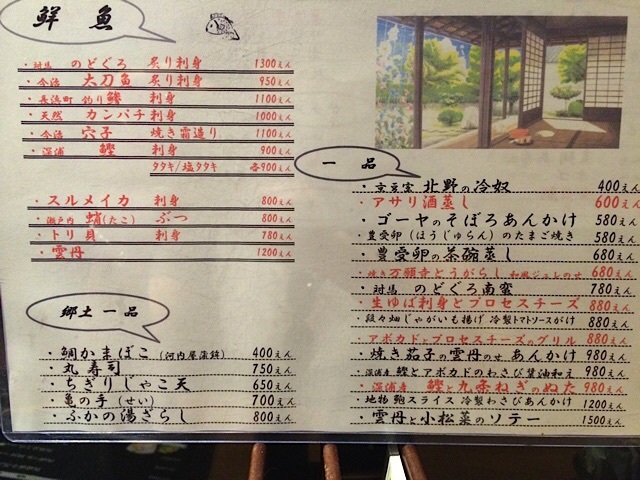 鮮魚
・対馬 のどぐろ 炙り刺身 1300えん
・今治 太刀魚 炙り刺身 950えん
・長浜町 釣り鯵 刺身 1100えん
・天然 カンパチ 刺身 1000えん
・今治 穴子 焼き霜造り 1100えん
・深浦 鰹 刺身 900えん
タタキ/塩タタキ 各900えん
・スルメイカ 刺身 800えん
・瀬戸内 蛸(たこ) ぶつ 800えん
・トリ貝 刺身 780えん
・雲丹 1200えん
郷土一品
・鯛かまぼこ (河内屋蒲鉾) 400えん
・丸寿司 750えん
・ちぎりじゃこ天 650えん
・亀の手 (せい) 700えん
・ふかの湯ざらし 800えん
一品
・京豆富 北野の冷奴 400えん
・アサリ酒蒸し 600えん
・ゴーヤのそぼろあんかけ 580えん
・豊受卵 (ほうじゅらん) のたまご焼き 580えん
・豊受卵の茶碗蒸し 680えん
・焼き万願寺とうがらし 和風ジュレのせ 680えん
・対馬 のどぐろ南蛮 780えん
・生ゆば刺身とプロセスチーズ 880えん
・段々畑じゃがいも揚げ 冷製トマトソースがけ 880えん
・アボカドとプロセスチーズのグリル 880えん
・焼き茄子の雲丹のせ あんかけ 980えん
・深浦産 鰹とアボカドのわさび醤油和え 980えん
・深浦産 鰹と九条ねぎのぬた 980えん
・地物 鮑スライス 冷製わさびあんかけ 1200えん
・雲丹と小松菜のソテー 1500えん